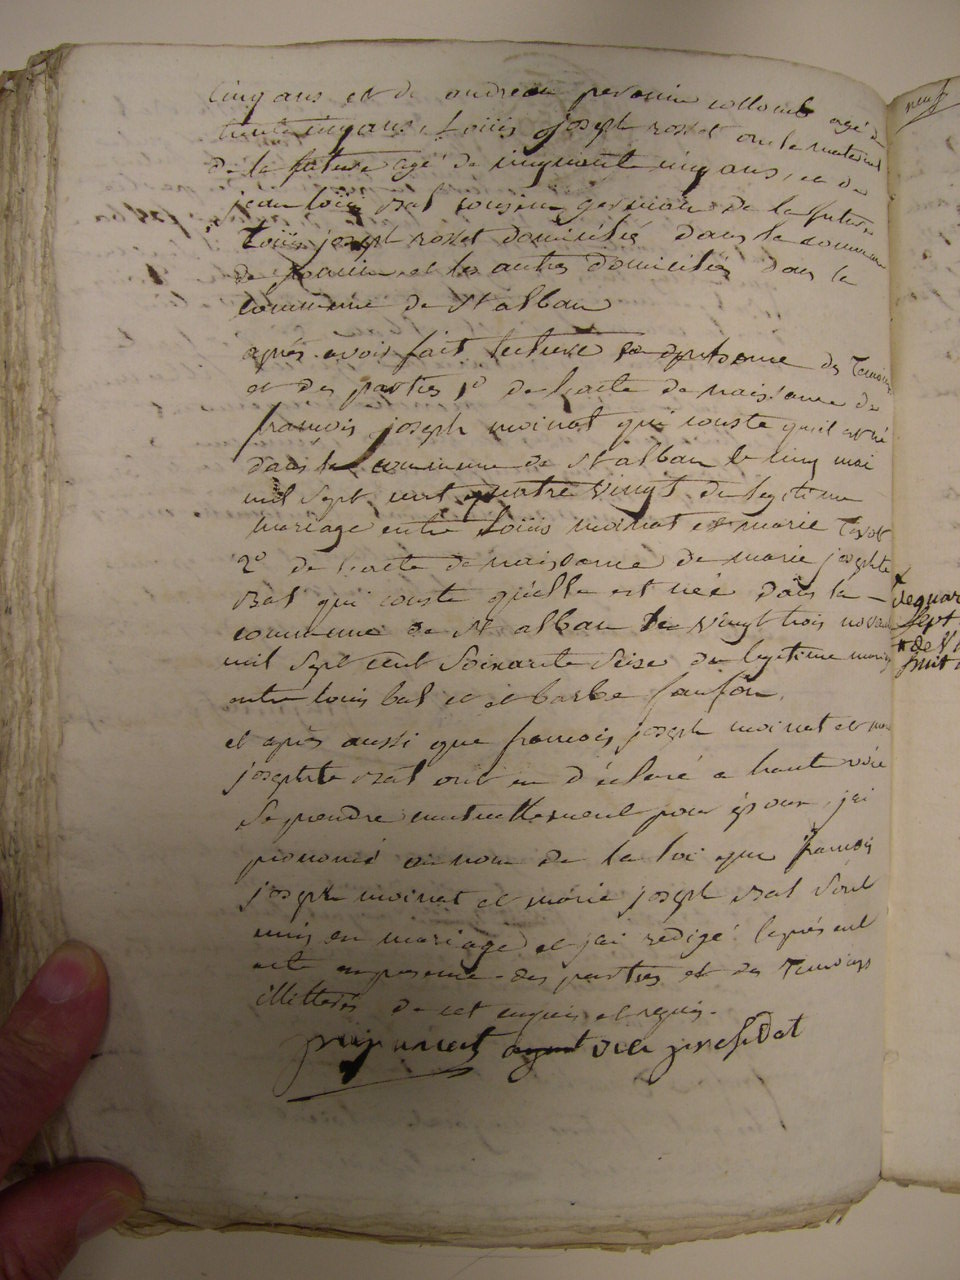 cinq ans et de andréan peronin collomb agé de
trente cinq ans Loüis joseph rosset oncle maternel
de la future agé de cinquante cinq ans, et de
jean loüis Bal cousin germain de la future
Loüis joseph rosset domicilié dans la commune
de et les autres domiciliés dans la
commune de St alban
après avoir fait lecture en presence des Temoins
et des parties 1º de l'acte de naissance de
francois joseph moinat qui conste quil est né
dans la commune de St alban le cinq mai
mil sept cent quatre vingt de legitime
mariage entre Loüis moinat et marie
2º de l'acte de naissance de marie josephte
Bal qui conste qu'elle est née dans la
commune de St alban le vingt trois novembre
mil sept cent soixante seise de legitime mariage
entre louis bal et barbe
et après aussi que francois joseph moinat et
josephte Bal ont eu déclaré a haute voix
se prendre mutuellement pour époux, j'ai
prononcé au nom de la loi que francois
joseph moinat et marie joseph Bal sont
unis en mariage et j'ai redigé le présent
acte en presence des parties et des Temoins
illitterés de cet enquis et requis.
agent
neuf